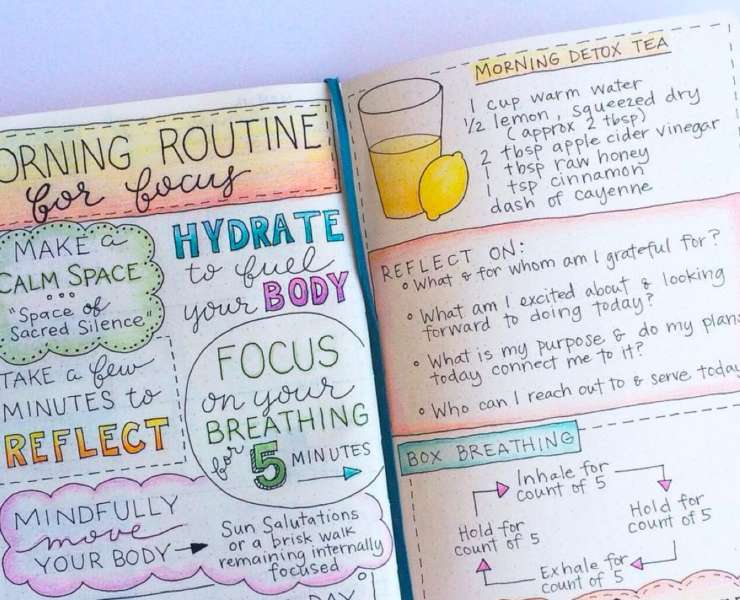 ORNING ROUTINE
for focus
MAKE a
CALM SPACE
"Space of
Sacred Silence"
HYDRATE
to fuel
your BODY
TAKE a few
MINUTES to
REFLECT
FOCUS
on your
BREATHING
for 5 MINUTES
MINDFULLY
move
YOUR BODY
Sun Salutations
or a brisk walk
remaining internally
focused
DAY
MORNING DETOX TEA
1 cup warm water
1/2 lemon, squeezed dry
(approx 2 tbsp)
2 tbsp apple cider vinegar
1 tbsp raw honey
1 tsp cinnamon
dash of cayenne
REFLECT ON:
• What & for whom am I grateful for?
• What am I excited about & looking
forward to doing today?
• What is my purpose & do my plans
today connect me to it?
• Who can I reach out to & serve today
BOX BREATHING
Inhale for
count of 5
Hold for
count of 5
Exhale for
count of 5
Hold for
count of 5